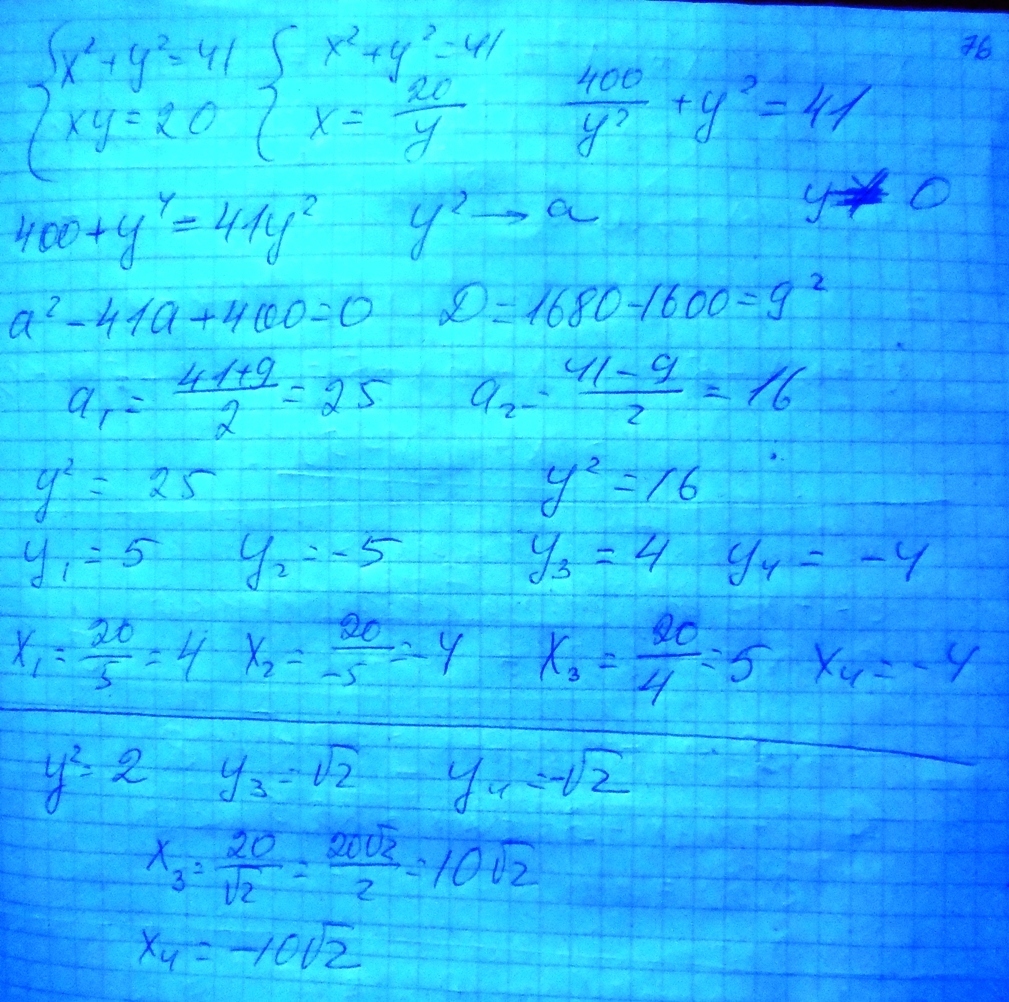 76
{ x² + y² = 41 { x² + y² = 41
xy = 20 x = 20/y 400/y² + y² = 41
400 + y⁴ = 41y² y² → a y ≠ 0
a² - 41a + 400 = 0 D = 1680 - 1600 = 9²
a₁ = (41+9)/2 = 25 a₂ = (41-9)/2 = 16
y² = 25 y² = 16
y₁ = 5 y₂ = -5 y₃ = 4 y₄ = -4
x₁ = 20/5 = 4 x₂ = 20/-5 = -4 x₃ = 20/4 = 5 x₄ = -4
y² = 2 y₃ = √2 y₄ = -√2
x₃ = 20/√2 = 20√2/2 = 10√2
x₄ = -10√2